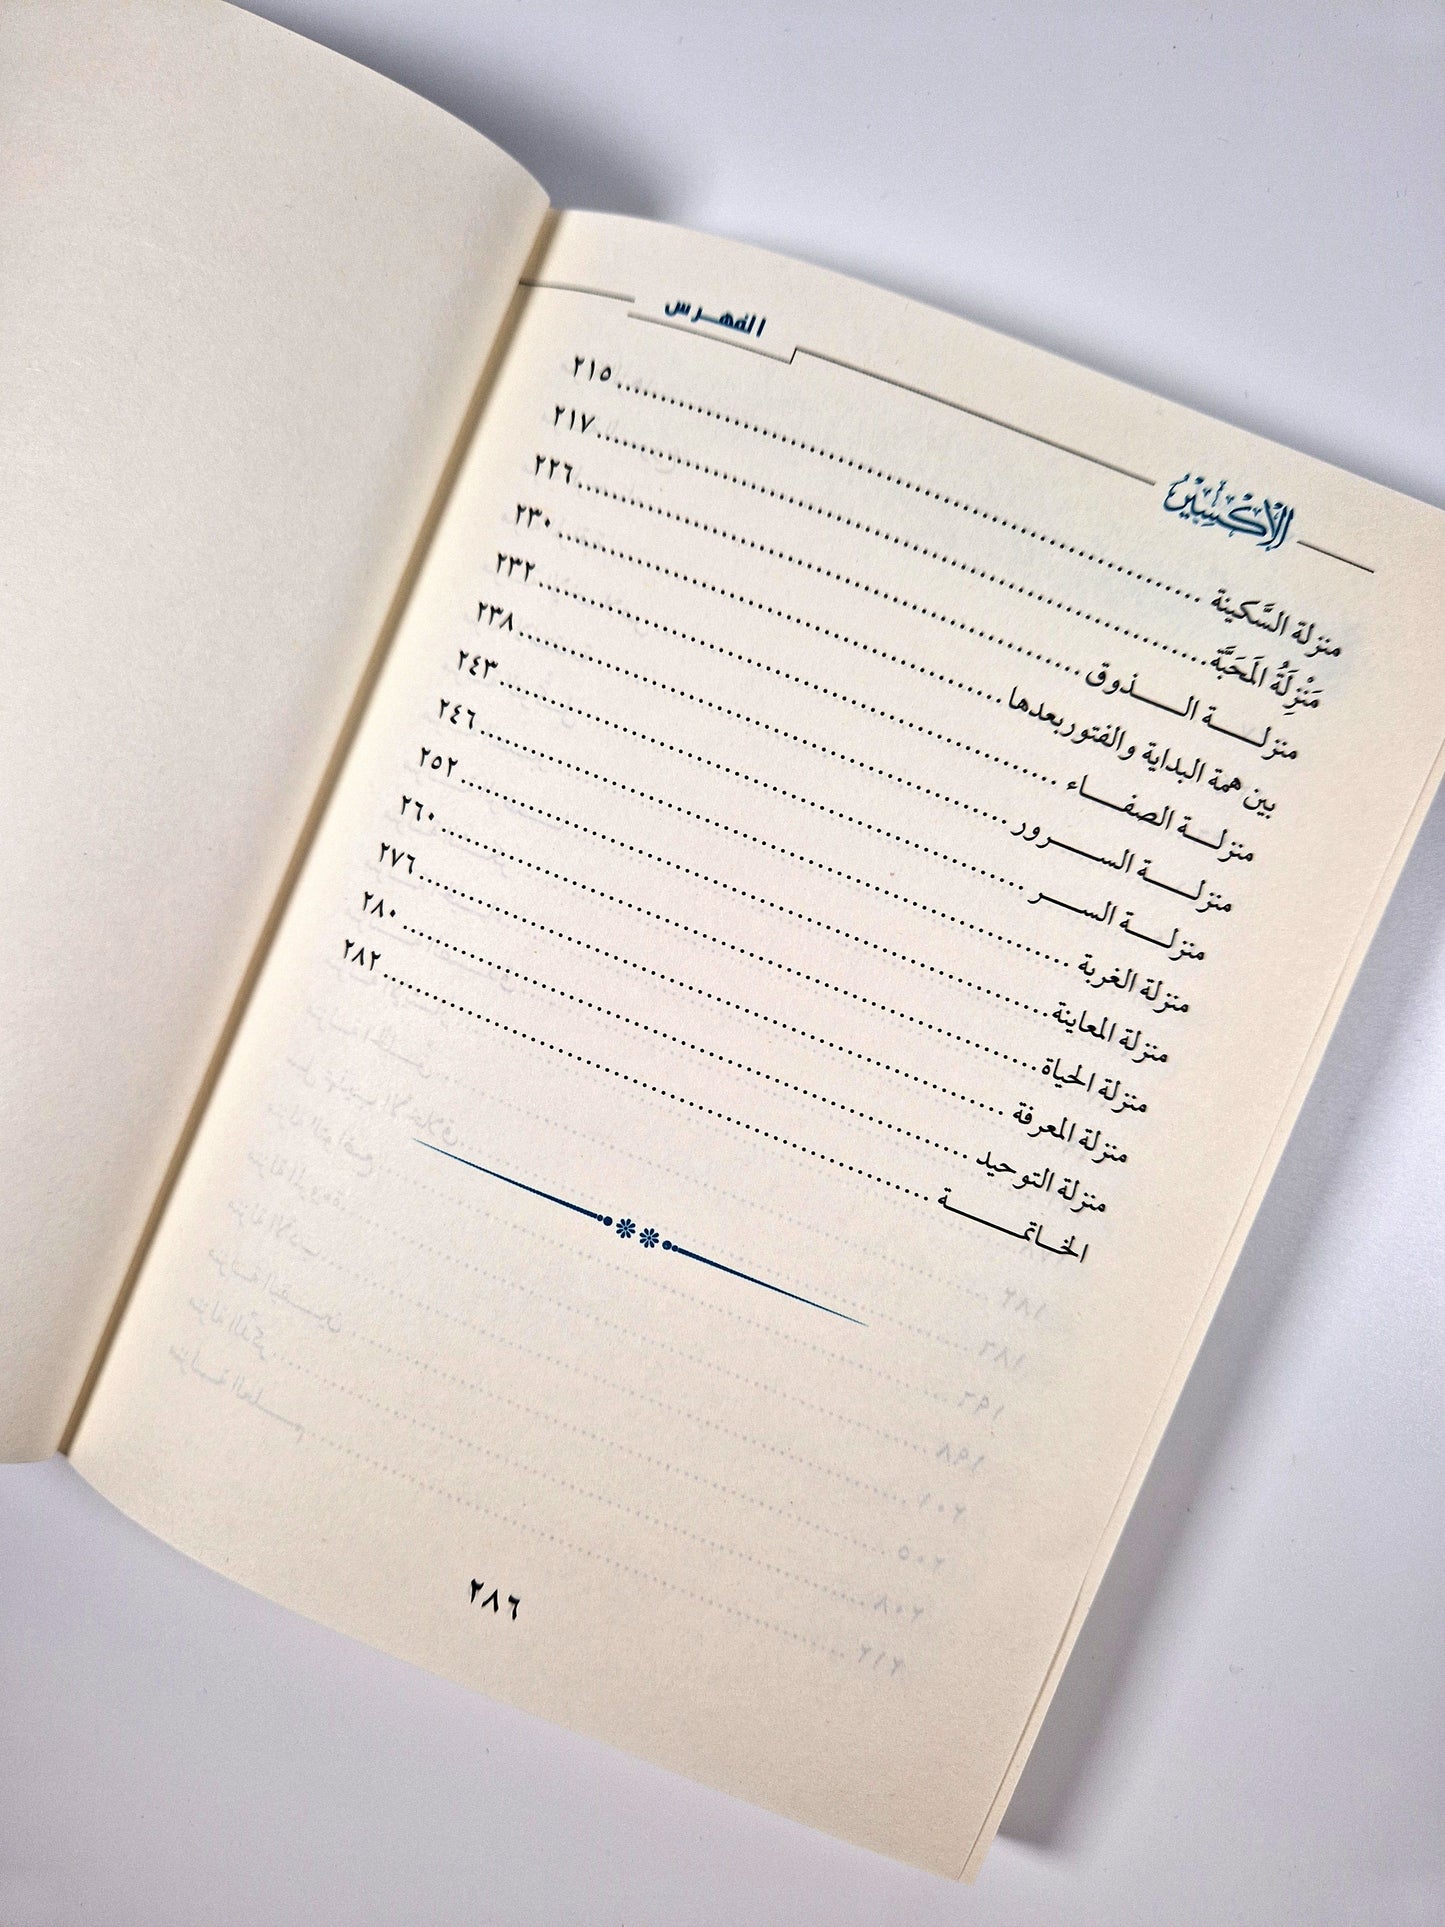 الإكسير
الفهرس
منزلة السَّكينة ٢١٥
مَنْزِلَةُ المَحَبَّة ٢١٧
منزلـــة الـــذوق ٢٢٦
بين همة البداية والفتور بعدها ٢٣٠
منزلـــة الصفـــاء ٢٣٢
منزلـــة الســـرور ٢٣٨
منزلـــة الســـر ٢٤٣
منزلة الغربة ٢٤٦
منزلة المعاينة ٢٥٢
منزلة الحياة ٢٦٠
منزلة المعرفة ٢٧٦
منزلة التوحيد ٢٨٠
الخـــاتمـــــة ٢٨٢
٢٨٦